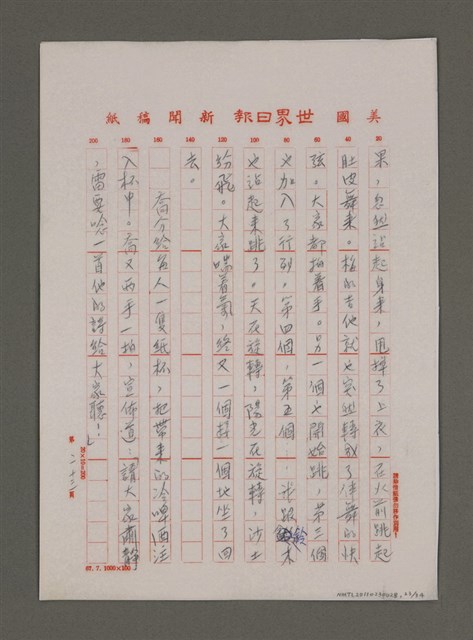 美國世界日報新聞稿紙
20
40
60
80
100
120
140
160
180
200
果，忽然站起身來，甩掉了上衣，在火前跳起
肚皮舞來。格的吉他就也突然轉成了伴舞的快
弦。大家都拍着手。另一個也開始跳，第三個
也加入了行列，第四個，第五個…米跟鈴木
也站起來跳了。天在旋轉，陽光在旋轉，沙土
紛飛。大家喘着氣，終又一個接一個地坐了回
去。
喬分給每人一隻紙杯，把帶來的冷啤酒注
入杯中。喬又兩手一拍，宣佈道：請大家肅靜
，雷要唸一首他的詩給大家聽！」
第二十三頁
20×10=200
67.7.1000×100
NMTL20110290028, 23/34